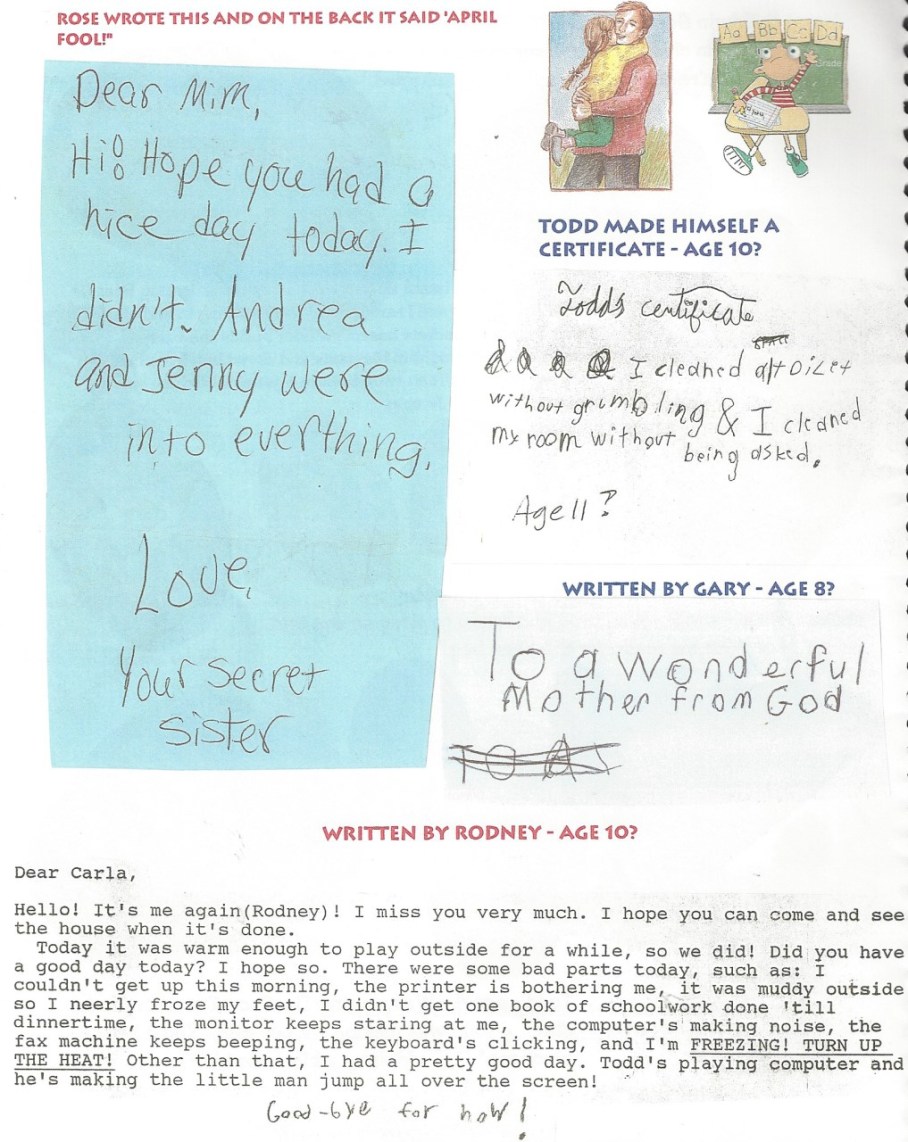 ROSE WROTE THIS AND ON THE BACK IT SAID 'APRIL
FOOL!"
Dear Mim,
Hi! Hope you had a
nice day today. I
didn't. Andrea
and Jenny were
into everthing.
Love,
Your secret
sister
Aa Bb Cc Dd
TODD MADE HIMSELF A
CERTIFICATE - AGE 10?
Todd's certificate
I cleaned a toilet
without grumbling & I cleaned
my room without
being asked.
Age 11?
WRITTEN BY GARY - AGE 8?
To a wonderful
Mother from God
WRITTEN BY RODNEY - AGE 10?
Dear Carla,
Hello! It's me again(Rodney)! I miss you very much. I hope you can come and see
the house when it's done.
Today it was warm enough to play outside for a while, so we did! Did you have
a good day today? I hope so. There were some bad parts today, such as: I
couldn't get up this morning, the printer is bothering me, it was muddy outside
so I neerly froze my feet, I didn't get one book of schoolwork done 'till
dinnertime, the monitor keeps staring at me, the computer's making noise, the
fax machine keeps beeping, the keyboard's clicking, and I'm FREEZING! TURN UP
THE HEAT! Other than that, I had a pretty good day. Todd's playing computer and
he's making the little man jump all over the screen!
Good-bye for now!